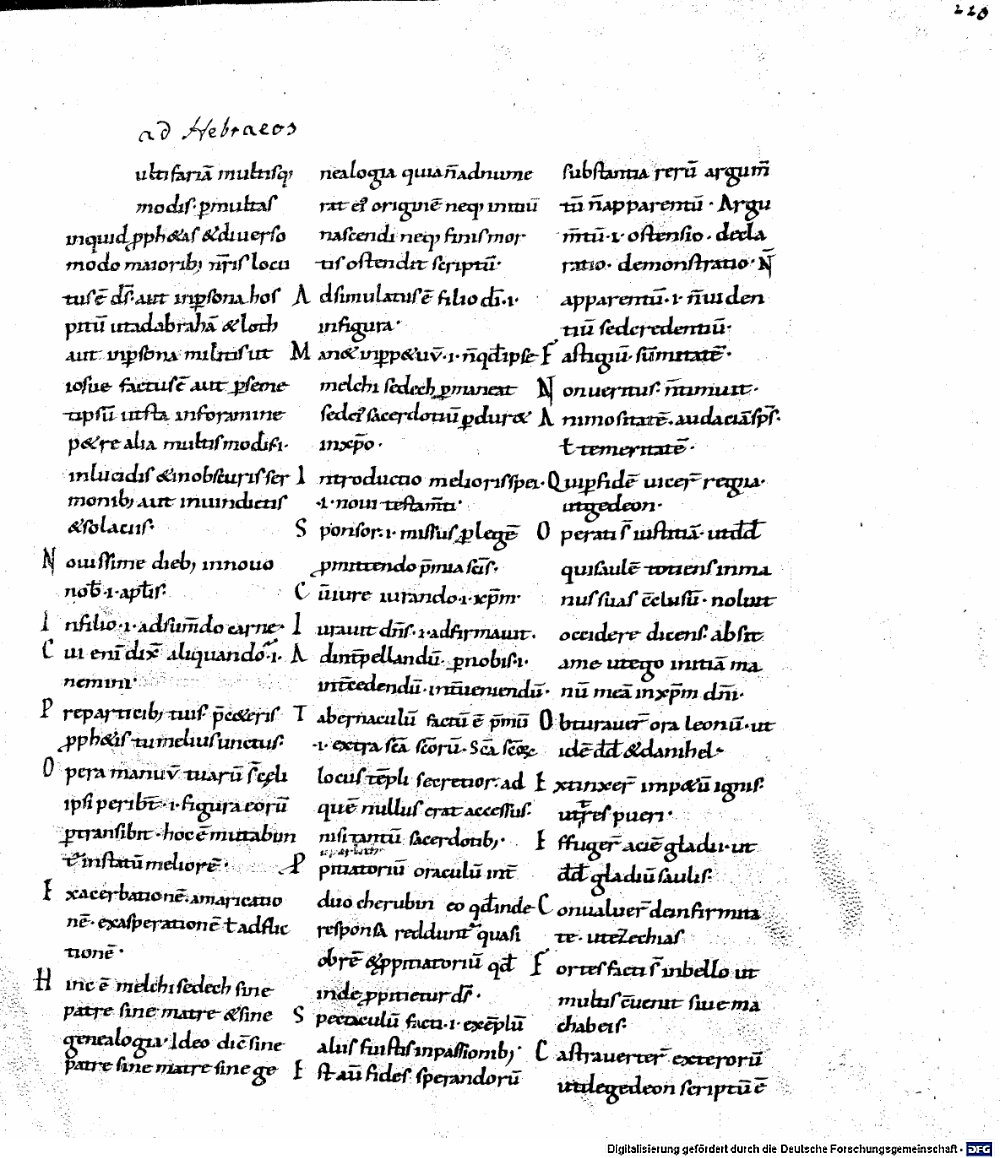 228
ad Hebraeos
ultifariā multisq;
modis· p̱multas
inquid ꝓph&as &diuerso
modo maiorib; nr̄is locu
tus ē ds̄· aut inꝑsona hos
pitū utadabrahā &loth
aut inꝑsona militis ut
iosue factus ē aut ꝑseme
tipsū utsta inforamine
p&re alia multismodis·
inlucidis &inobscuris ser
monib; aut inuindictis
&solaciis·
N ouissime dieb; innouo
nob̄·i·aptīs·
I nfilio·i·adsumdo carnē·
C ui enī dix̄ aliquando·i·
nemini·
P reparticib; tuis· p̄ce&eris
ꝓph&is tumeliusunctus·
O pera manuū tuarū s̄ cęli
ipsi peribt̄·i·figura eorū
ꝑtransibit·hoc ē mutabun
t̄ instatū meliorē·
E xacerbationē·amaricatio
nē·exasperationē ł adflic
tionē·
H inc ē melchisedech sine
patre sine matre &sine
genealogia· Ideo dic̄ sine
patre sine matre sine ge
nealogia quia n̄adnume
rat ei origine neq; initiū
nascendi neq; finis mor
tis ostendit scriptū·
A dsimulatus ē filio dī·i·
infigura·
M an& inꝑp&uū·i·n̄qđipse
melchisedech ꝑmaneat
sed ei sacerdotiū ꝑdur&
inxp̄o·
I ntroductio meliorisspei·
·i·noui testam̄ti·
S ponsor·i·missus ꝑlegē
ꝓmittendo p̄mia sc̄is·
C ūiure iurando·i·xp̄m·
I urauit dn̄s·i·adfirmauit·
A dint̄pellandū· ꝓnobis·i·
int̄cedendū·int̄ueniendū·
T abernaculū factū ē p̄mū
·i·extra sc̄a sc̄orū· Sc̄a sc̄oꝝ
locus tēpli secretior· ad
quē nullus erat accessus·
nisi tantū sacerdotib;·
P pitiatoriū oraculū int̄
duo cherubin eo qđinde
responsa reddunt· quasi
obrē &ꝓpitiatoriū qđ
inde ꝓpitietur ds̄·
S pectaculū facti·i·exēplū
aliis fuistis inpassionib;·
E st aū fides· sperandorū
substantia rerū argum̄
tū n̄apparentū· Argu
m̄tū·i·ostensio· decla
ratio· demonstratio· N̄
apparentū·i·n̄uiden
tiū sedcredentiū·
F astigiū· sūmitatē·
N onueritus· n̄timuit·
A nimositatē· audaciā sps̄·
ł temeritatē·
Q uiꝑfidē uicer̄ regna·
utgedeon·
O perati s̄ iustitiā· utdđ
quisaulē totiens inma
nus suas c̄clusū· noluit
occidere dicens· absit
ame utego mittā ma
nū meā inxp̄m dn̄i·
O bturauer̄ ora leonū·ut
idē dđ &danihel·
E xtinxer̄ imp&ū ignis·
utt̄res pueri·
E ffuger̄ aciē gladii·ut
dđ gladiū saulis·
C onualuer̄ deinfirmita
te· utezechias
F ortes facti s̄ inbello ut
multis ēuenit siue ma
chabeis·
C astrauerter̄ exterorū
utdegedeon scriptū ē
Digitalisierung gefördert durch die Deutsche Forschungsgemeinschaft - DFG